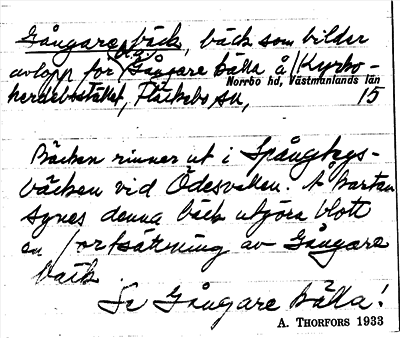 Gångare bäck, bäck som bildar
avlopp för s.k. Gångare källa å Kyrko-
Norrbo hd, Västmanlands län
herdebostället, Fläckebo sn, 15
Bäcken rinner ut i Spångbygs-
bäcken vid Ödesvallen. Å kartan
synes denna bäck utgöra blott
en fortsättning av Gångare
bäck.
Se Gångare källa!
A. THORFORS 1933